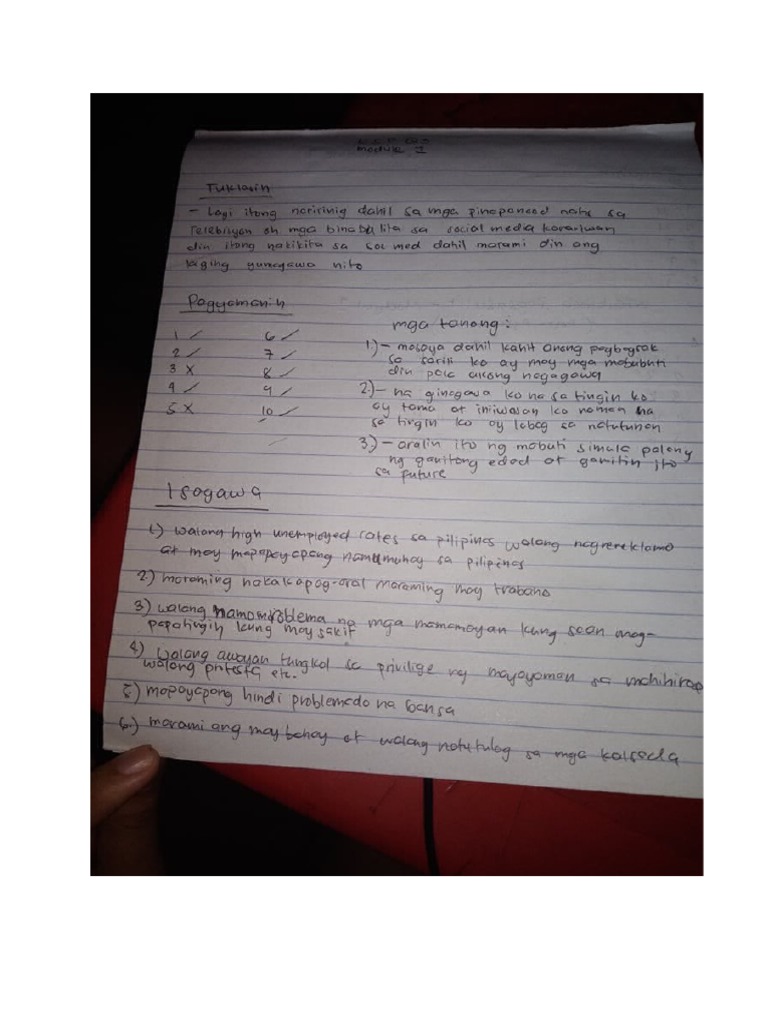 Module 1
Tuklasin
- Lagi itong naririnig dahil sa mga pinapanood natin sa
Telebisyon oh mga binabalita sa social media karaniwan
din itong nakikita sa soc med dahil marami din ang
laging gumagawa nito
Pagyamanin
1 ✓ 6 ✓
2 ✓ 7 ✓
3 X 8 ✓
4 ✓ 9 ✓
5 X 10 ✓
mga tanong:
1.) - masaya dahil kahit anong pagbagsak
sa sarili ko ay may mga mabubuti
din pala akong nagagawa
2.) - na ginagawa ko na sa tingin ko
ay tama at iniiwasan ko naman na
sa tingin ko ay labag sa natutunan
3.) - aralin ito ng mabuti simula palang
ng ganitong edad at gamitin ito
sa future
Isagawa
1.) walang high unemployed rates sa pilipinas walang nagrereklamo
at may mapapayapang namumuhay sa pilipinas
2.) maraming nakakapag-aral maraming may trabaho
3.) walang namomroblema na mga mamamayan kung saan mag-
papatingin kung may sakit
4.) walang awayan tungkol sa privilige ng mayayaman sa mahihirap
walang protesta etc.
5.) mapayapang hindi problemado na bansa
6.) marami ang may bahay at walang natutulog sa mga kalsada